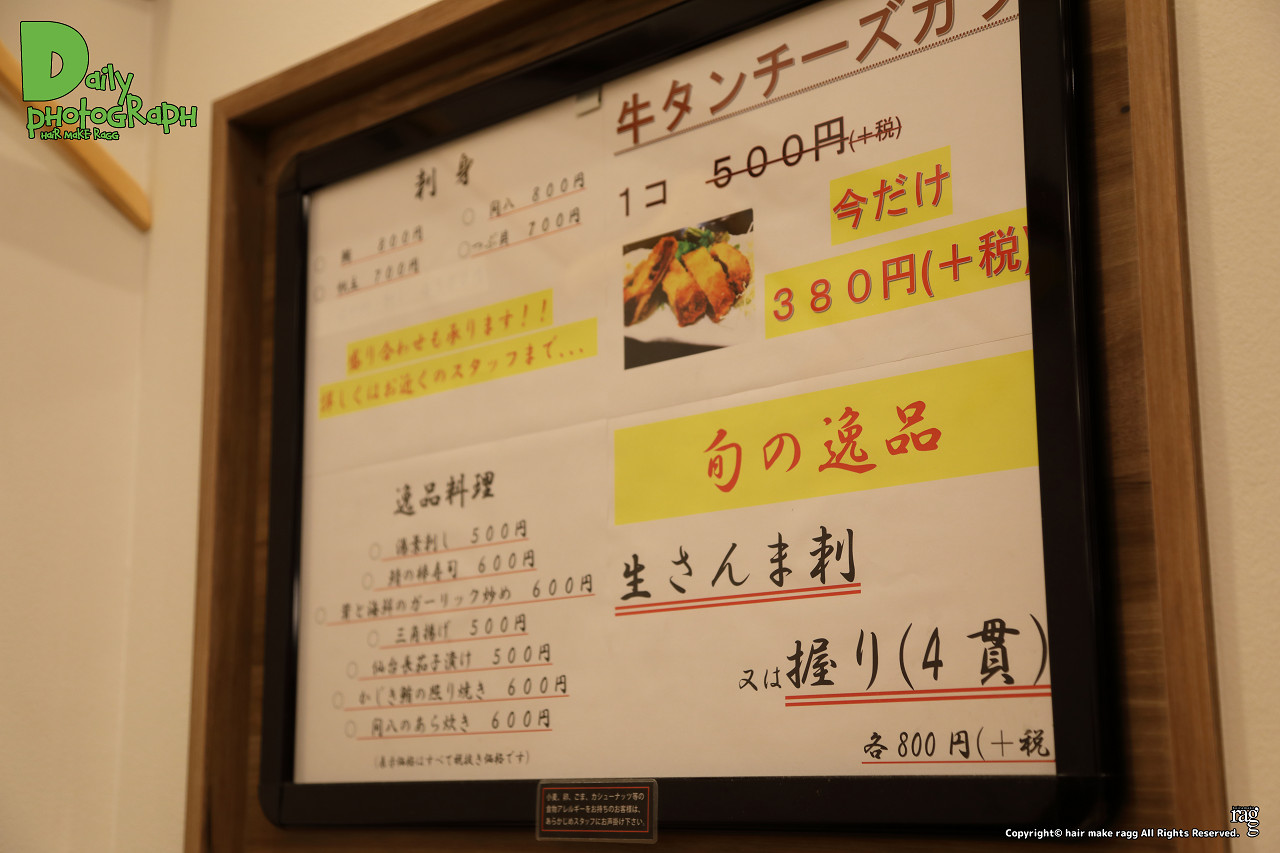 Daily
photograph
hair make ragg
刺身
間八 800円
つぶ貝 700円
800円
700円
盛り合わせも承ります！！
詳しくはお近くのスタッフまで...
逸品料理
湯葉刺し 500円
鯖の棒寿司 600円
と海鮮のガーリック炒め 600円
三角揚げ 500円
仙台長茄子漬け 500円
かじき鮪の照り焼き 600円
間八のあら炊き 600円
(表示価格はすべて税抜き価格です)
牛タンチーズカツ
1コ 500円(+税)
今だけ
380円(+税)
旬の逸品
生さんま刺
又は握り(4貫)
各800円(+税
小麦、卵、ごま、カシューナッツ等の
食物アレルギーをお持ちのお客様は、
あらかじめスタッフにお声掛け下さい。
ragg
Copyright© hair make ragg All Rights Reserved.